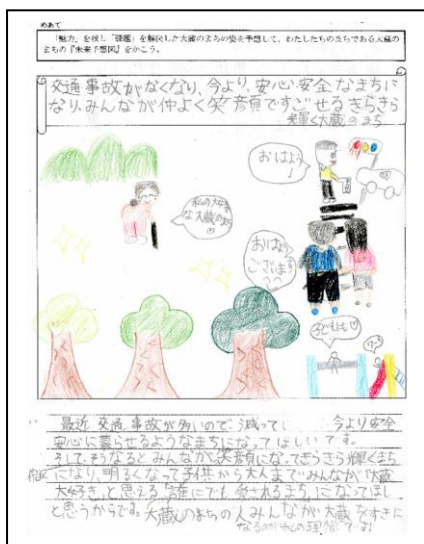 めあて
「魅力」を残し「課題」を解決した大蔵のまちの姿を予想して、わたしたちのまちである大蔵の
まちの『未来予想図』をかこう。
交通事故がなくなり、今より、安心安全なまちに
なり、みんなが仲よく笑顔ですごせるきらきら
輝く大蔵のまち
おはよう
!
私の大好き
な大蔵のまち
おはよう
ございます
子ども
最近交通事故が多いので、減って
今より安全
安心に暮らせるようなまちになってほしいです。
そして、そうなるとみんなが笑顔になってきらきら輝くまち
になり、明るくなって子供から大人まで、みんなが「大蔵
大好き」と思える「誰にでも愛されるまち」になってほし
と思うからです。大蔵のまちの人みんなが大蔵をすきに
なるのが私の理想です